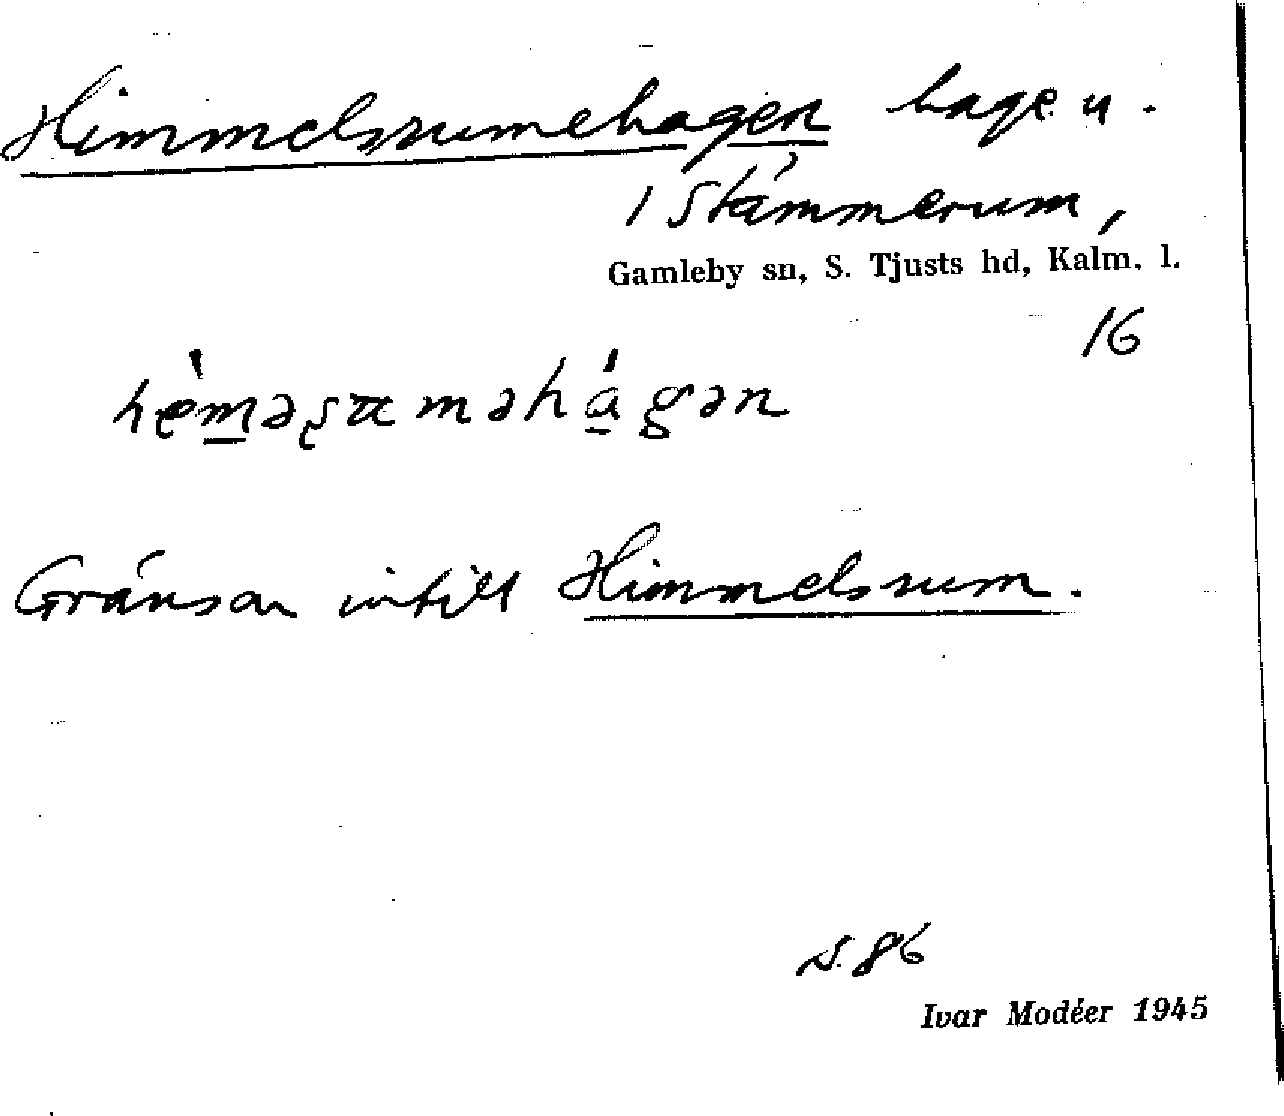 Himmelsrumehagen hage u.
i Stämmerum,
Gamleby sn, S. Tjusts hd, Kalm. l.
16
Gränsar intill Himmelsrum.
s. 86
Ivar Modéer 1945